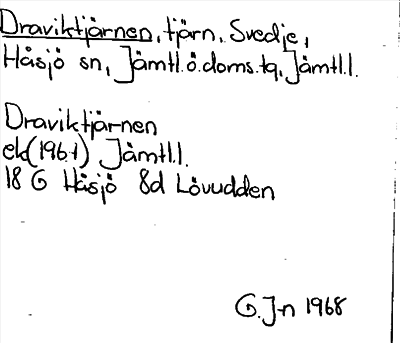 Draviktjärnen, tjärn, Svedje,
Håsjö sn, Jämtl.ö.doms.tq, Jämtl.l.
Draviktjärnen
ek(1961) Jämtl.l.
18 G Håsjö 8d Lövudden
G.J-n 1968